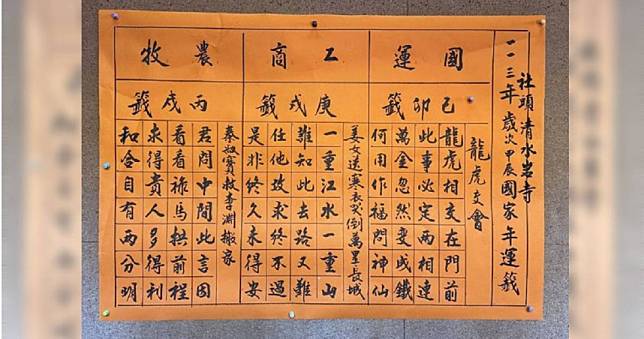 社頭清水岩寺
一一三年歲次甲辰國家年運籤
國運
己卯籤
龍虎交會
龍虎相交在門前
此事必定兩相連
萬金忽然變成鐵
何用作福問神仙
工商
庚戌籤
姜女送寒衣哭倒萬里長城
一重江水一重山
誰知此去路又難
任他改求終不過
是非終久未得安
農牧
丙戌籤
秦叔寶救李淵搬家
君問中間此言因
看看祿馬拱前程
求得貴人多得利
和合自有兩分明